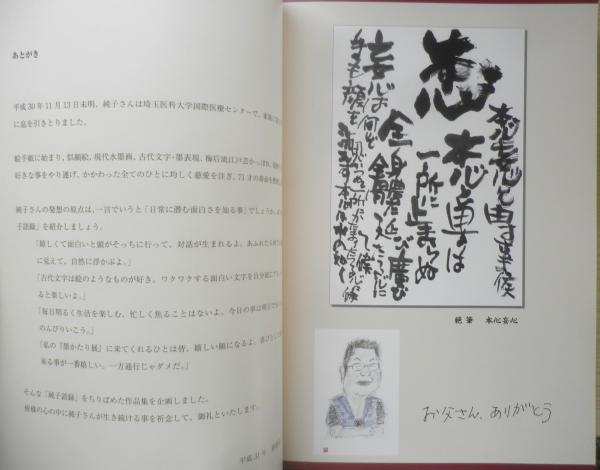 あとがき
平成30年11月13日未明、純子さんは埼玉医科大学国際医療センターで、家族に
に息を引きとりました。
絵手紙に始まり、似顔絵、現代水墨画、古代文字・墨表現、梅后流江戸芸かっぽれ、
好きな事をやり遂げ、かかわった全てのひとに均しく慈愛を注ぎ、71才の寿命を
純子さんの発想の原点は、一言でいうと「日常に潜む面白さを知る事」でしょうか。
子語録」を紹介しましょう。
「嬉しくて面白いと頭がそっちに行って、対話が生まれるよ。あふれたら
に見えて、自然に浮かぶよ。」
「古代文字は絵のようなものが好き。ワクワクする面白い文字を自分流に
ると楽しいよ。」
「毎日明るく生活を楽しむ、忙しく焦ることはないよ。今日の事は明日で
のんびりいこう。」
「私の『墨かたり展』に来てくれるひとは皆、嬉しい顔になるよ。喜び
来る事が一番嬉しい。一方通行じゃダメだ。」
そんな『純子語録』をちりばめた作品集を企画しました。
皆様の心の中に純子さんが生き続ける事を祈念して、御礼といたします。
平成31年
本心妄心と申す事候
本心と申は
一所に止まらぬ
全身體に延び廣ごり
妄心は何ぞ
絶筆 本心妄心
お父さん、ありがとう